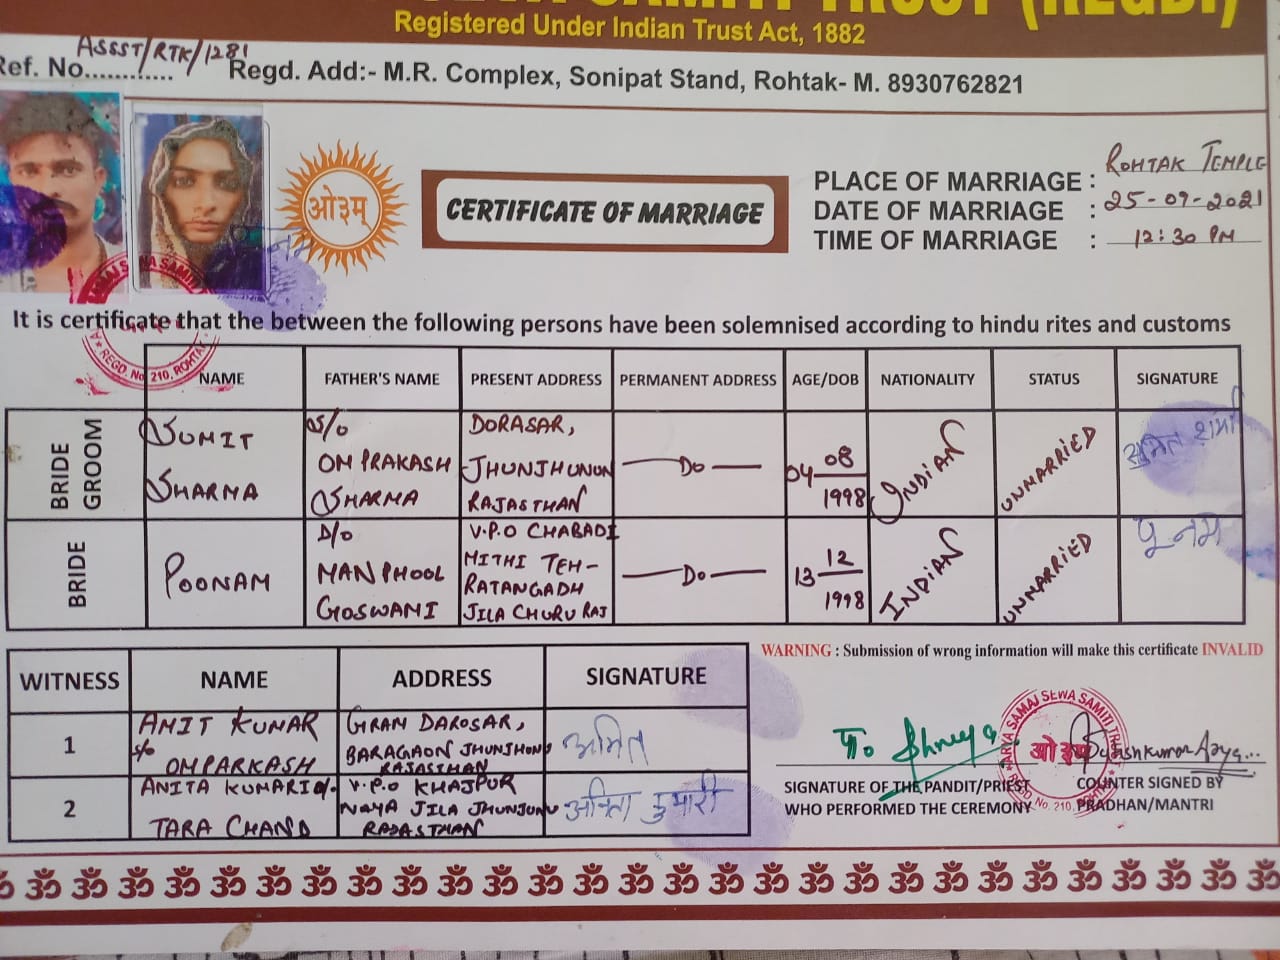 Registered Under Indian Trust Act, 1882
Ref. No. ASSST/RTK/1281 Regd. Add:- M.R. Complex, Sonipat Stand, Rohtak- M. 8930762821
ओ३म्
CERTIFICATE OF MARRIAGE
PLACE OF MARRIAGE : ROHTAK TEMPLE
DATE OF MARRIAGE : 25-09-2021
TIME OF MARRIAGE : 12:30 PM
It is certificate that the between the following persons have been solemnised according to hindu rites and customs
NAME FATHER'S NAME PRESENT ADDRESS PERMANENT ADDRESS AGE/DOB NATIONALITY STATUS SIGNATURE
BRIDE GROOM
SUMIT SHARMA
S/O OM PRAKASH SHARMA
DORASAR, JHUNJHUNUN RAJASTHAN
Do
04 08 1998
INDIAN
UNMARRIED
सुमित शर्मा
BRIDE
POONAM
D/O MANPHOOL GOSWAMI
V.P.O CHABADI MITHI TEH- RATANGADH JILA CHURU RAJ
Do
13 12 1998
INDIAN
UNMARRIED
पूनम
WARNING : Submission of wrong information will make this certificate INVALID
WITNESS NAME ADDRESS SIGNATURE
1
AMIT KUMAR S/O OMPARKASH
GRAM DAROSAR, BARAGAON JHUNJHUNU RAJASTHAN
अमित
2
ANITA KUMARI TARA CHAND
V.P.O KHAJPUR NAYA JILA JHUNJUNU RAJASTHAN
अनिता कुमारी
SIGNATURE OF THE PANDIT/PRIEST
WHO PERFORMED THE CEREMONY
ARYA SAMAJ SEWA SAMITI TRUST
ओ३म्
COUNTER SIGNED BY
PRADHAN/MANTRI
REGD. No. 210, ROHTAK